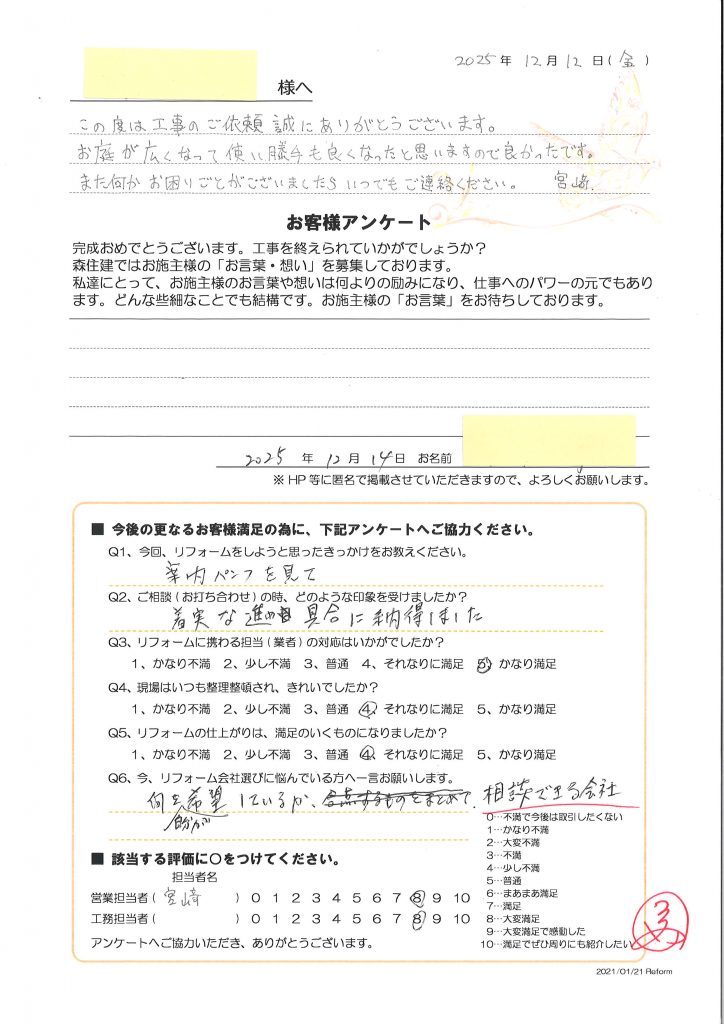 2025年 12月 12日(金)
様へ
この度は工事のご依頼誠にありがとうございます。
お庭が広くなって使い勝手も良くなったと思いますので良かったです。
また何かお困りごとがございましたらいつでもご連絡ください。 宮崎
お客様アンケート
完成おめでとうございます。工事を終えられていかがでしょうか?
森住建ではお施主様の「お言葉・想い」を募集しております。
私達にとって、お施主様のお言葉や想いは何よりの励みになり、仕事へのパワーの元でもあり
ます。どんな些細なことでも結構です。お施主様の「お言葉」をお待ちしております。
2025 年 12月 14日 お名前
※HP等に匿名で掲載させていただきますので、よろしくお願いします。
■ 今後の更なるお客様満足の為に、下記アンケートへご協力ください。
Q1、今回、リフォームをしようと思ったきっかけをお教えください。
案内パンフを見て
Q2、ご相談(お打ち合わせ)の時、どのような印象を受けましたか?
着実な進め具合に納得しました
Q3、リフォームに携わる担当(業者)の対応はいかがでしたか?
1、かなり不満 2、少し不満 3、普通 4、それなりに満足 5、かなり満足
Q4、現場はいつも整理整頓され、きれいでしたか?
1、かなり不満 2、少し不満 3、普通 4、それなりに満足 5、かなり満足
Q5、リフォームの仕上がりは、満足のいくものになりましたか?
1、かなり不満 2、少し不満 3、普通 4、それなりに満足 5、かなり満足
Q6、今、リフォーム会社選びに悩んでいる方へ一言お願いします。
何を希望しているか、合点するものをまとめて、相談できる会社
自分が
0…不満で今後は取引したくない
1…かなり不満
2…大変不満
3…不満
4…少し不満
5…普通
6…まあまあ満足
7…満足
8…大変満足
9…大変満足で感動した
10…満足でぜひ周りにも紹介したい
■ 該当する評価に○をつけてください。
担当者名
営業担当者( 宮崎 ) 0 1 2 3 4 5 6 7 8 9 10
工務担当者( ) 0 1 2 3 4 5 6 7 8 9 10
アンケートへご協力いただき、ありがとうございます。
2021/01/21 Reform